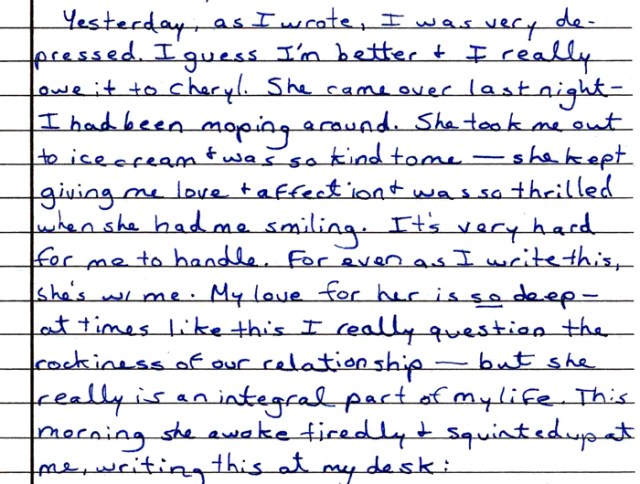 Yesterday, as I wrote, I was very de-
pressed. I guess I'm better + I really
owe it to Cheryl. She came over last night-
I had been moping around. She took me out
to ice cream + was so kind to me — she kept
giving me love + affection + was so thrilled
when she had me smiling. It's very hard
for me to handle. For even as I write this,
she's w/ me. My love for her is so deep-
at times like this I really question the
rockiness of our relationship — but she
really is an integral part of my life. This
morning she awoke tiredly + squinted up at
me, writing this at my desk: